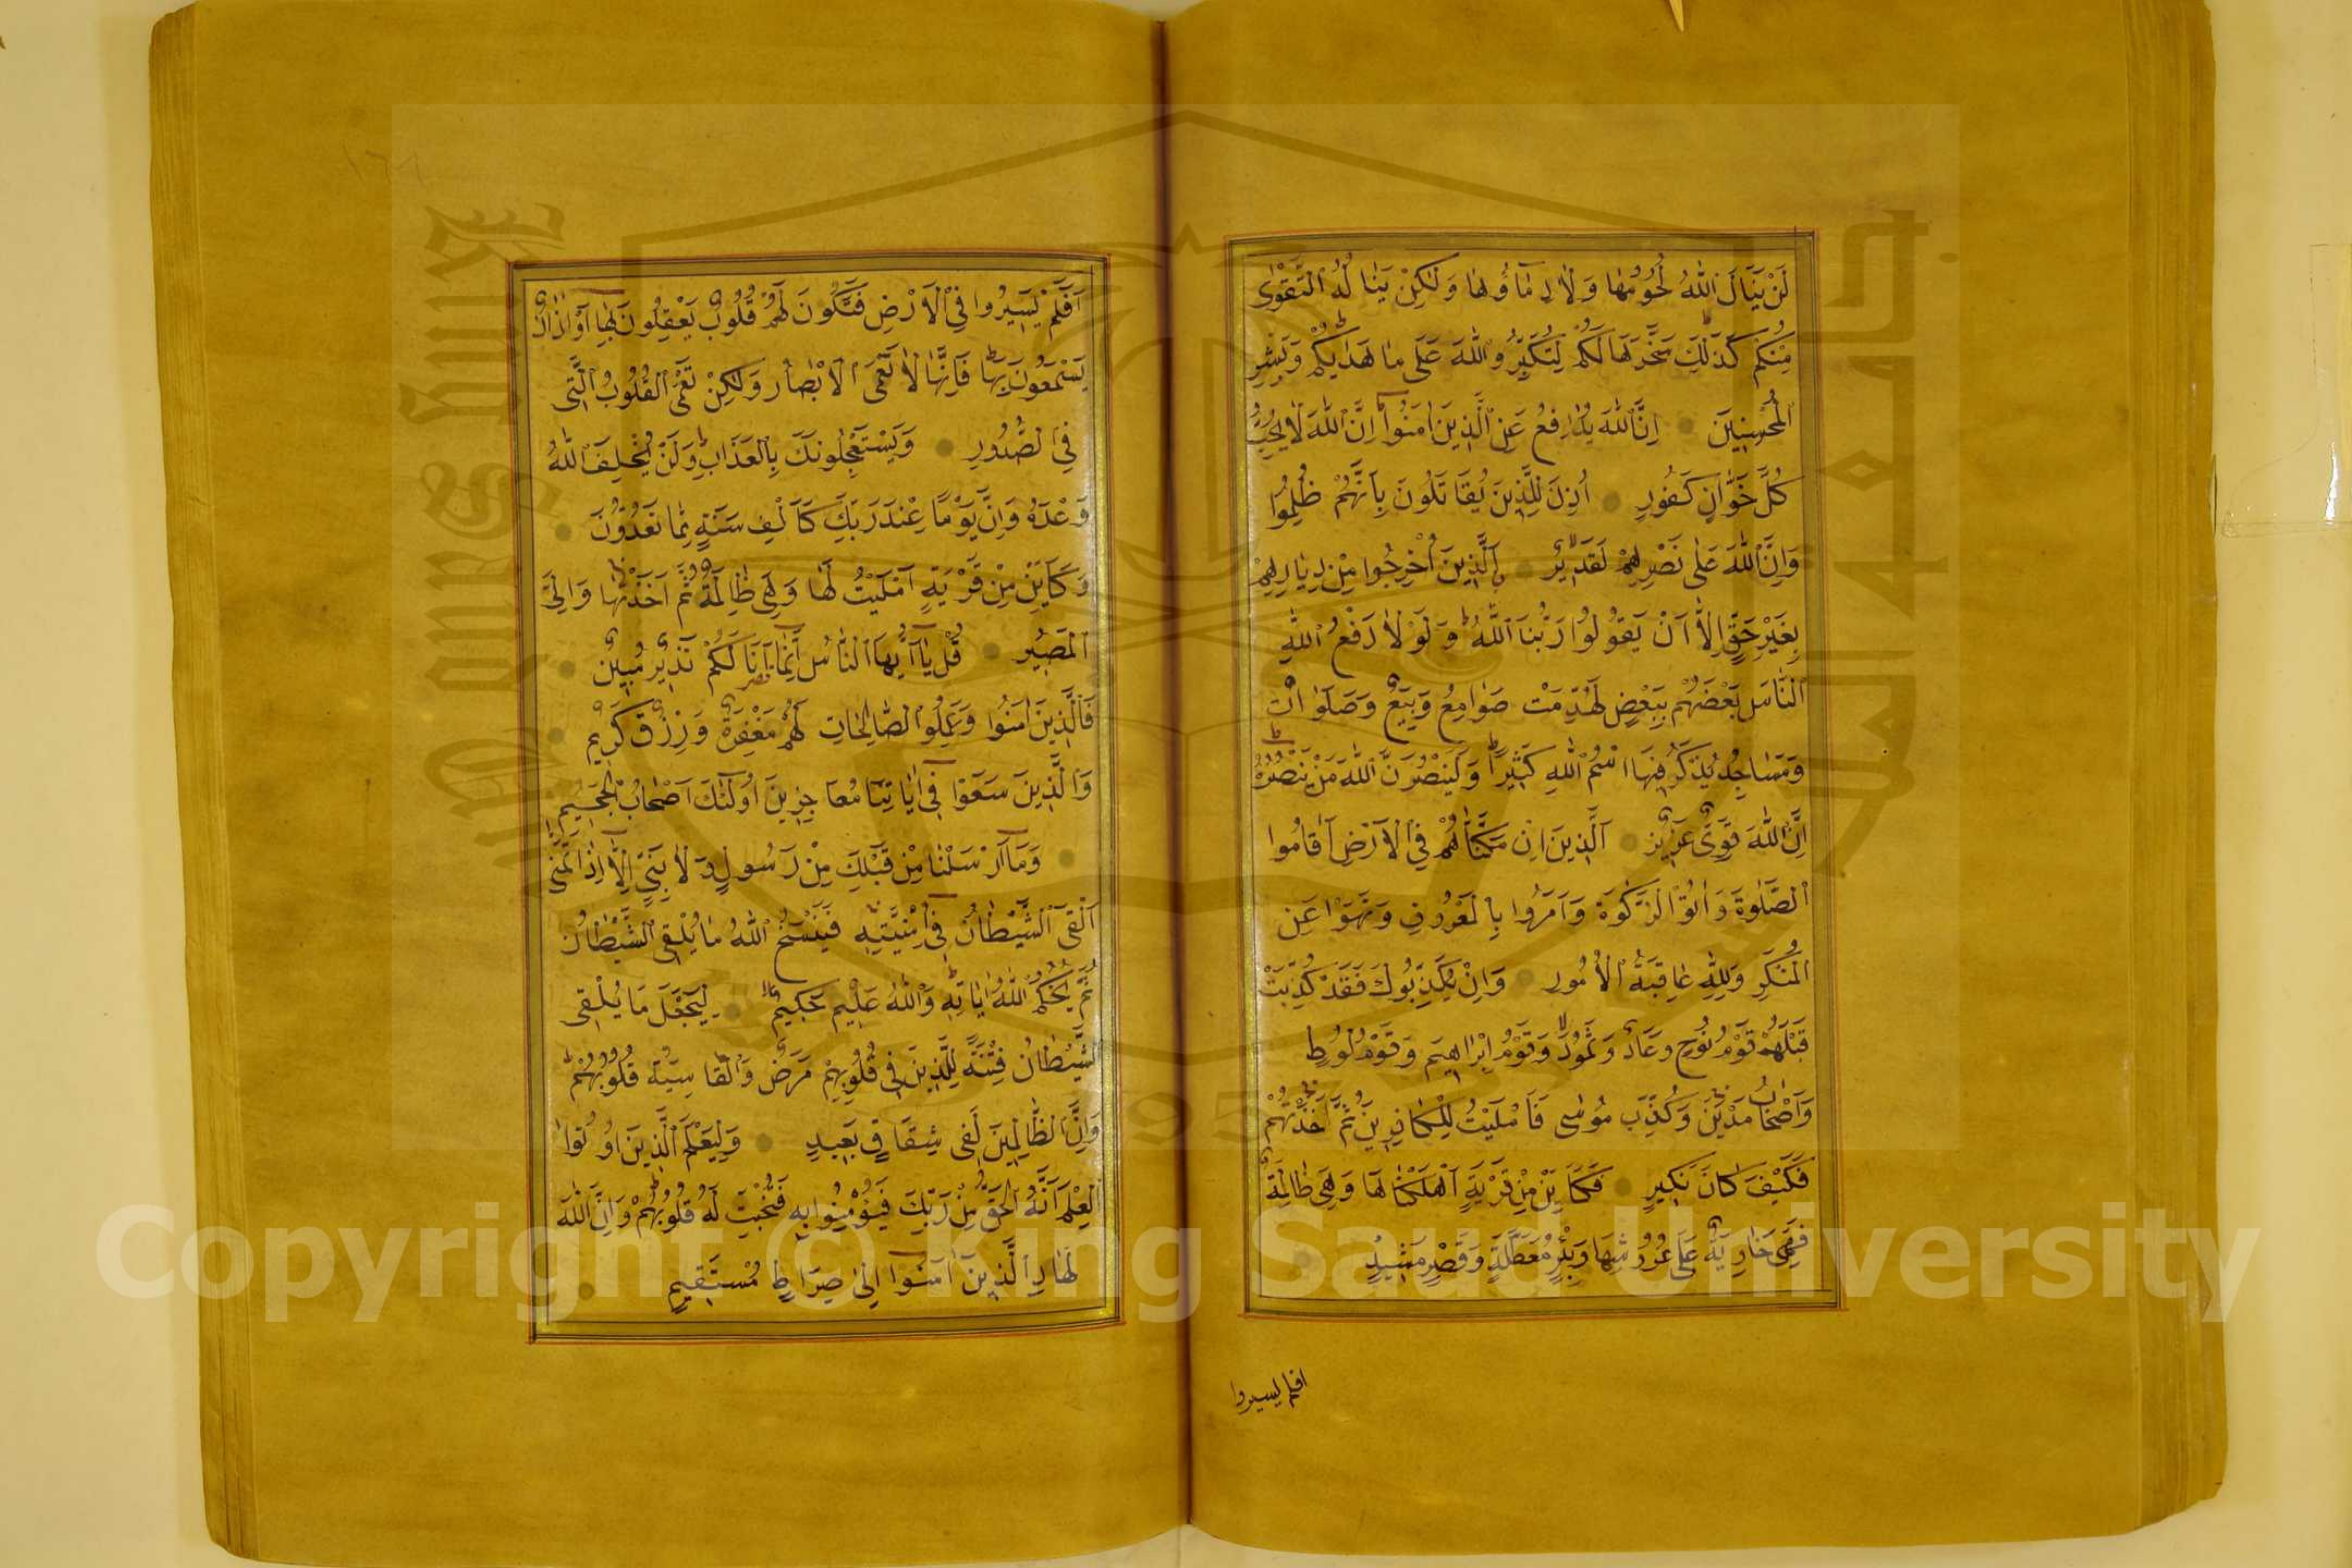 لَنْ يَنَالَ اللّٰهَ لُحُومُهَا وَلَا دِمَاؤُهَا وَلٰكِنْ يَنَالُهُ التَّقْوٰى
مِنْكُمْ كَذٰلِكَ سَخَّرَهَا لَكُمْ لِتُكَبِّرُوا اللّٰهَ عَلٰى مَا هَدٰيكُمْ وَبَشِّرِ
الْمُحْسِنِينَ اِنَّ اللّٰهَ يُدَافِعُ عَنِ الَّذِينَ اٰمَنُوا اِنَّ اللّٰهَ لَا يُحِبُّ
كُلَّ خَوَّانٍ كَفُورٍ اُذِنَ لِلَّذِينَ يُقَاتَلُونَ بِاَنَّهُمْ ظُلِمُوا
وَاِنَّ اللّٰهَ عَلٰى نَصْرِهِمْ لَقَدِيرٌ اَلَّذِينَ اُخْرِجُوا مِنْ دِيَارِهِمْ
بِغَيْرِ حَقٍّ اِلَّا اَنْ يَقُولُوا رَبُّنَا اللّٰهُ وَلَوْلَا دَفْعُ اللّٰهِ
النَّاسَ بَعْضَهُمْ بِبَعْضٍ لَهُدِّمَتْ صَوَامِعُ وَبِيَعٌ وَصَلَوَاتٌ
وَمَسَاجِدُ يُذْكَرُ فِيهَا اسْمُ اللّٰهِ كَثِيرًا وَلَيَنْصُرَنَّ اللّٰهُ مَنْ يَنْصُرُهُ
اِنَّ اللّٰهَ لَقَوِىٌّ عَزِيزٌ اَلَّذِينَ اِنْ مَكَّنَّاهُمْ فِي الْاَرْضِ اَقَامُوا
الصَّلٰوةَ وَاٰتَوُا الزَّكٰوةَ وَاَمَرُوا بِالْمَعْرُوفِ وَنَهَوْا عَنِ
الْمُنْكَرِ وَلِلّٰهِ عَاقِبَةُ الْاُمُورِ وَاِنْ يُكَذِّبُوكَ فَقَدْ كَذَّبَتْ
قَبْلَهُمْ قَوْمُ نُوحٍ وَعَادٌ وَثَمُودُ وَقَوْمُ اِبْرَاهِيمَ وَقَوْمُ لُوطٍ
وَاَصْحَابُ مَدْيَنَ وَكُذِّبَ مُوسٰى فَاَمْلَيْتُ لِلْكَافِرِينَ ثُمَّ اَخَذْتُهُمْ
فَكَيْفَ كَانَ نَكِيرِ فَكَاَيِّنْ مِنْ قَرْيَةٍ اَهْلَكْنَاهَا وَهِىَ ظَالِمَةٌ
فَهِىَ خَاوِيَةٌ عَلٰى عُرُوشِهَا وَبِئْرٍ مُعَطَّلَةٍ وَقَصْرٍ مَشِيدٍ
افلم يسيروا
اَفَلَمْ يَسِيرُوا فِي الْاَرْضِ فَتَكُونَ لَهُمْ قُلُوبٌ يَعْقِلُونَ بِهَا اَوْ اٰذَانٌ
يَسْمَعُونَ بِهَا فَاِنَّهَا لَا تَعْمَى الْاَبْصَارُ وَلٰكِنْ تَعْمَى الْقُلُوبُ الَّتِى
فِي الصُّدُورِ وَيَسْتَعْجِلُونَكَ بِالْعَذَابِ وَلَنْ يُخْلِفَ اللّٰهُ
وَعْدَهُ وَاِنَّ يَوْمًا عِنْدَ رَبِّكَ كَاَلْفِ سَنَةٍ مِمَّا تَعُدُّونَ
وَكَاَيِّنْ مِنْ قَرْيَةٍ اَمْلَيْتُ لَهَا وَهِىَ ظَالِمَةٌ ثُمَّ اَخَذْتُهَا وَاِلَىَّ
الْمَصِيرُ قُلْ يَا اَيُّهَا النَّاسُ اِنَّمَا اَنَا لَكُمْ نَذِيرٌ مُبِينٌ
فَالَّذِينَ اٰمَنُوا وَعَمِلُوا الصَّالِحَاتِ لَهُمْ مَغْفِرَةٌ وَرِزْقٌ كَرِيمٌ
وَالَّذِينَ سَعَوْا فِى اٰيَاتِنَا مُعَاجِزِينَ اُولٰئِكَ اَصْحَابُ الْجَحِيمِ
وَمَا اَرْسَلْنَا مِنْ قَبْلِكَ مِنْ رَسُولٍ وَلَا نَبِىٍّ اِلَّا اِذَا تَمَنّٰى
اَلْقَى الشَّيْطَانُ فِى اُمْنِيَّتِهِ فَيَنْسَخُ اللّٰهُ مَا يُلْقِى الشَّيْطَانُ
ثُمَّ يُحْكِمُ اللّٰهُ اٰيَاتِهِ وَاللّٰهُ عَلِيمٌ حَكِيمٌ لِيَجْعَلَ مَا يُلْقِى
الشَّيْطَانُ فِتْنَةً لِلَّذِينَ فِى قُلُوبِهِمْ مَرَضٌ وَالْقَاسِيَةِ قُلُوبُهُمْ
وَاِنَّ الظَّالِمِينَ لَفِى شِقَاقٍ بَعِيدٍ وَلِيَعْلَمَ الَّذِينَ اُوتُوا
الْعِلْمَ اَنَّهُ الْحَقُّ مِنْ رَبِّكَ فَيُؤْمِنُوا بِهِ فَتُخْبِتَ لَهُ قُلُوبُهُمْ وَاِنَّ اللّٰهَ
لَهَادِ الَّذِينَ اٰمَنُوا اِلٰى صِرَاطٍ مُسْتَقِيمٍ
Copyright © King Saud University